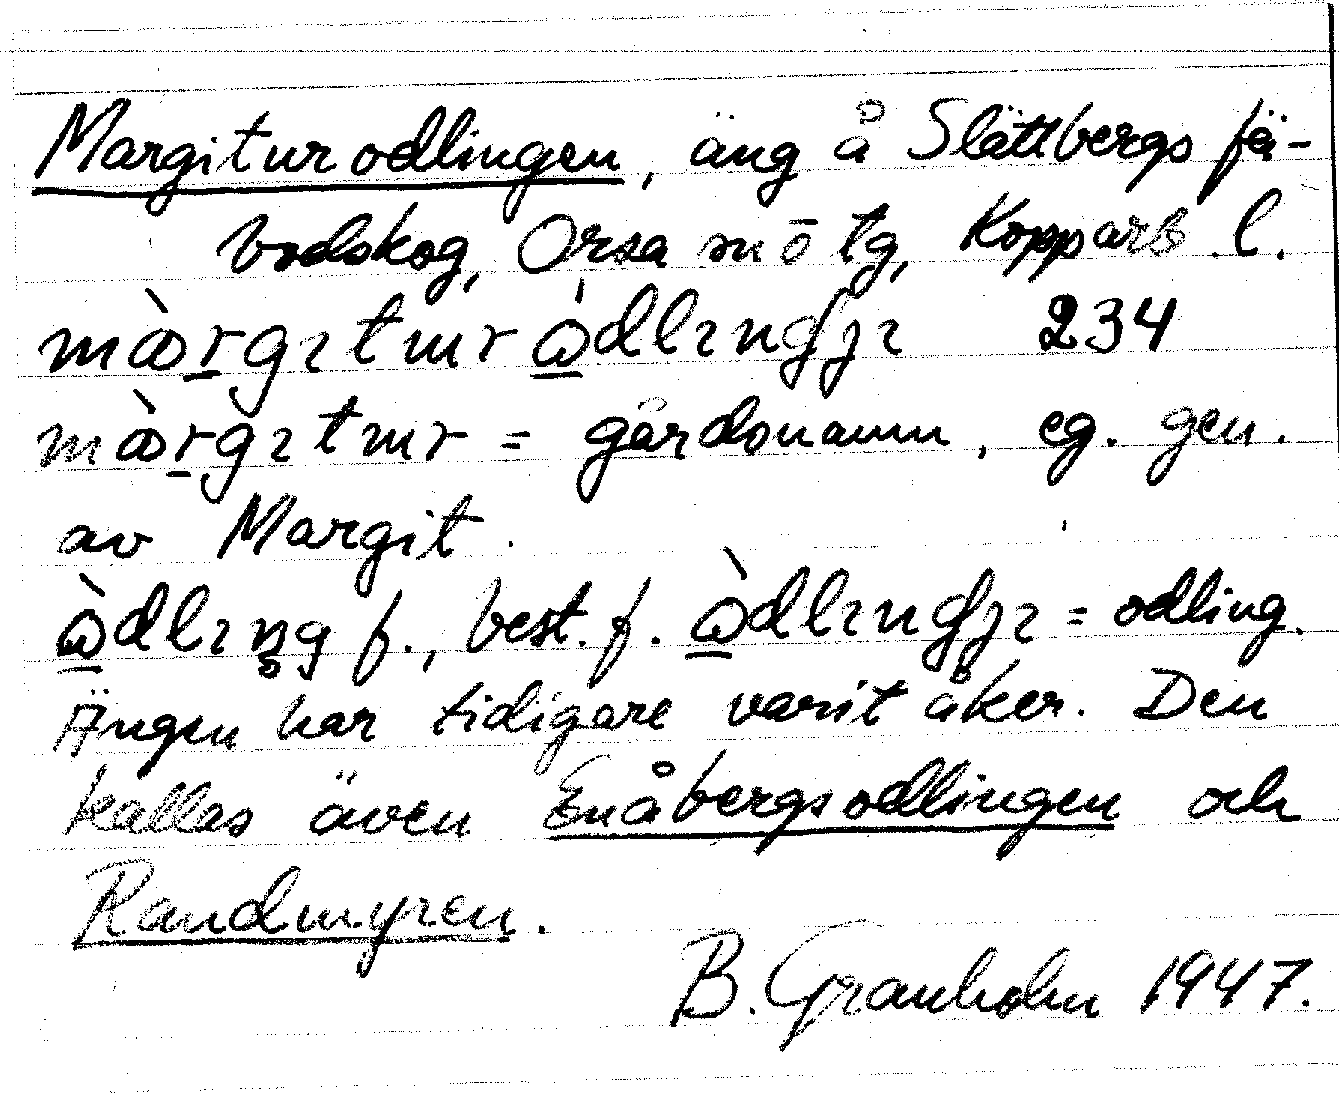 Margiturodlingen, äng å Slättbergs fä-
bodskog, Orsa sn ö tg, Kopparb. l.
234
= gårdsnamn, eg. gen.
av Margit.
f., best. f. = odling.
Ängen har tidigare varit åker. Den
kallas även Enåbergsodlingen och
Randmyren.
B. Granholm 1947.